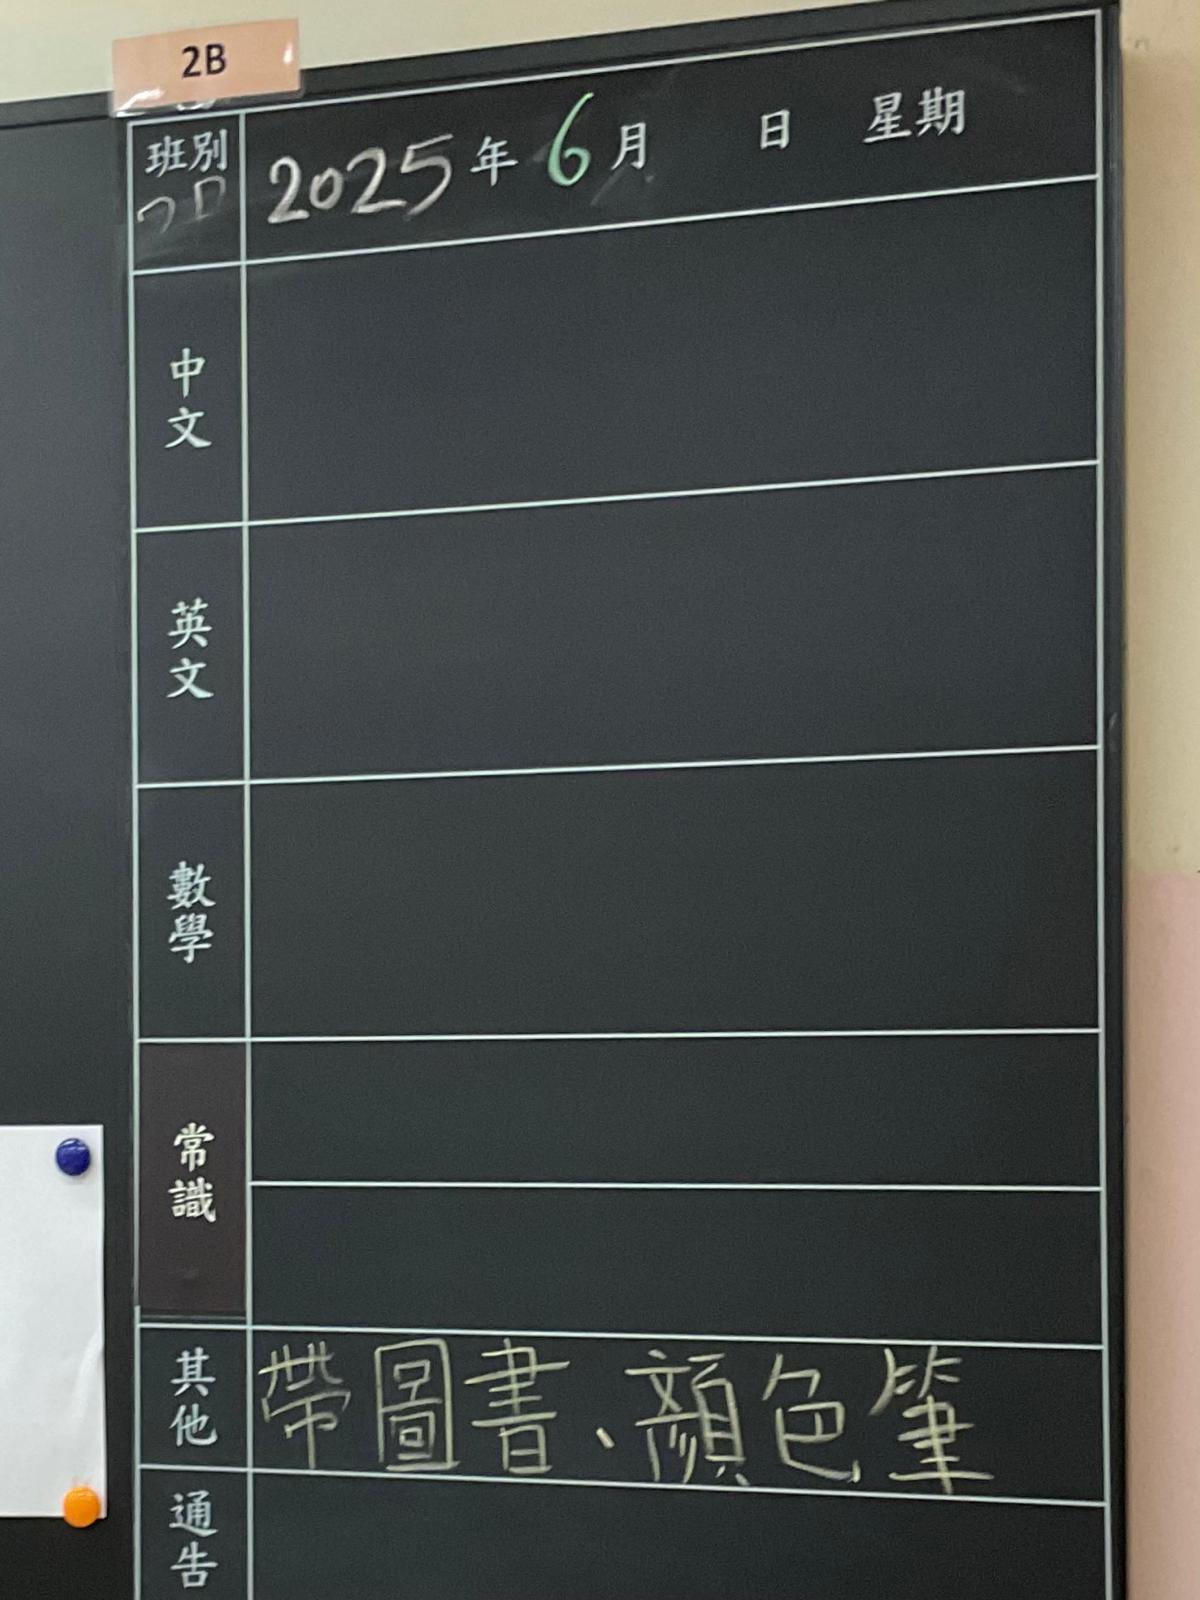 2B
班別 2025年6月 日 星期
中文
英文
數學
常識
其他 帶圖書、顏色筆
通告